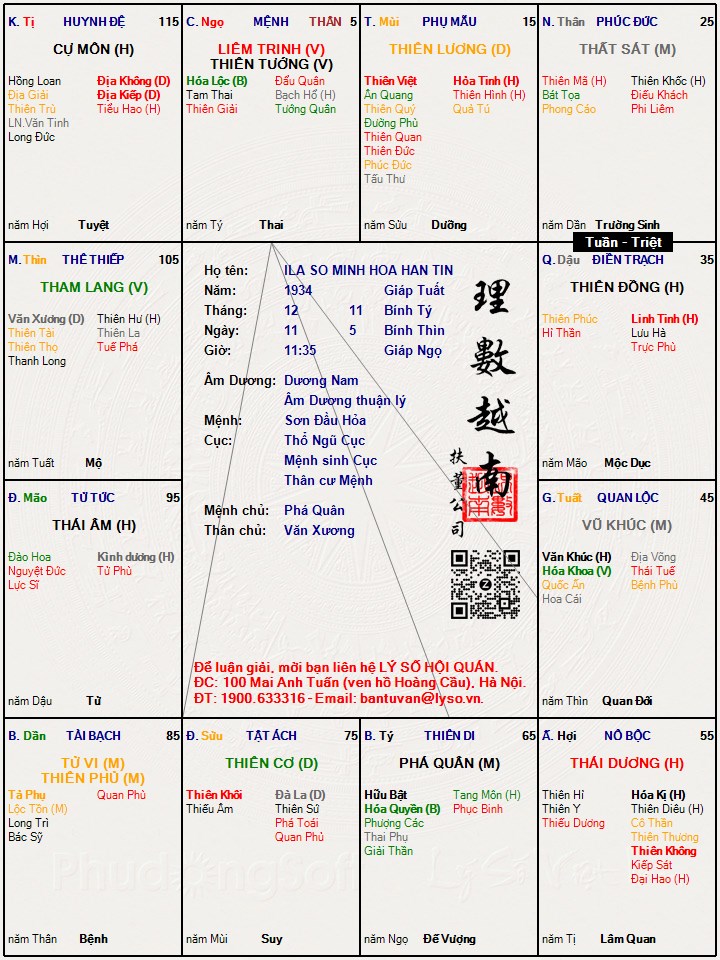 K. Tị HUYNH ĐỆ 115
CỰ MÔN (H)
Hồng Loan Địa Không (D)
Địa Giải Địa Kiếp (D)
Thiên Trù Tiểu Hao (H)
LN.Văn Tinh
Long Đức
năm Hợi Tuyệt
C. Ngọ MỆNH THÂN 5
LIÊM TRINH (V)
THIÊN TƯỚNG (V)
Hóa Lộc (B) Đẩu Quân
Tam Thai Bạch Hổ (H)
Thiên Giải Tướng Quân
năm Tý Thai
T. Mùi PHỤ MẪU 15
THIÊN LƯƠNG (D)
Thiên Việt Hỏa Tinh (H)
Ân Quang Thiên Hình (H)
Thiên Quý Quả Tú
Đường Phù
Thiên Quan
Thiên Đức
Phúc Đức
Tấu Thư
năm Sửu Dưỡng
N. Thân PHÚC ĐỨC 25
THẤT SÁT (M)
Thiên Mã (H) Thiên Khốc (H)
Bát Tọa Điếu Khách
Phong Cáo Phi Liêm
năm Dần Trường Sinh
Tuần - Triệt
M. Thìn THÊ THIẾP 105
THAM LANG (V)
Văn Xương (D) Thiên Hư (H)
Thiên Tài Thiên La
Thiên Thọ Tuế Phá
Thanh Long
năm Tuất Mộ
Họ tên: ILA SO MINH HOA HAN TIN
Năm: 1934 Giáp Tuất
Tháng: 12 11 Bính Tý
Ngày: 11 5 Bính Thìn
Giờ: 11:35 Giáp Ngọ
Âm Dương: Dương Nam
Âm Dương thuận lý
Mệnh: Sơn Đầu Hỏa
Cục: Thổ Ngũ Cục
Mệnh sinh Cục
Thân cư Mệnh
Mệnh chủ: Phá Quân
Thân chủ: Văn Xương
理數越南
扶董公司
Để luận giải, mời bạn liên hệ LÝ SỐ HỘI QUÁN.
ĐC: 100 Mai Anh Tuấn (ven hồ Hoàng Cầu), Hà Nội.
ĐT: 1900.633316 - Email: bantuvan@lyso.vn.
Q. Dậu ĐIỀN TRẠCH 35
THIÊN ĐỒNG (H)
Thiên Phúc Linh Tinh (H)
Hỉ Thần Lưu Hà
Trực Phù
năm Mão Mộc Dục
Đ. Mão TỬ TỨC 95
THÁI ÂM (H)
Đào Hoa Kình dương (H)
Nguyệt Đức Tử Phù
Lực Sĩ
năm Dậu Tử
G. Tuất QUAN LỘC 45
VŨ KHÚC (M)
Văn Khúc (H) Địa Võng
Hóa Khoa (V) Thái Tuế
Quốc Ấn Bệnh Phù
Hoa Cái
năm Thìn Quan Đới
B. Dần TÀI BẠCH 85
TỬ VI (M)
THIÊN PHỦ (M)
Tả Phụ Quan Phù
Lộc Tồn (M)
Long Trì
Bác Sỹ
năm Thân Bệnh
Đ. Sửu TẬT ÁCH 75
THIÊN CƠ (D)
Thiên Khôi Đà La (D)
Thiếu Âm Thiên Sứ
Phá Toái
Quan Phủ
năm Mùi Suy
B. Tý THIÊN DI 65
PHÁ QUÂN (M)
Hữu Bật Tang Môn (H)
Hóa Quyền (B) Phục Binh
Phượng Các
Thai Phụ
Giải Thần
năm Ngọ Đế Vượng
Ấ. Hợi NÔ BỘC 55
THÁI DƯƠNG (H)
Thiên Hỉ Hóa Kị (H)
Thiên Y Thiên Diêu (H)
Thiếu Dương Cô Thần
Thiên Thương
Thiên Không
Kiếp Sát
Đại Hao (H)
năm Tị Lâm Quan